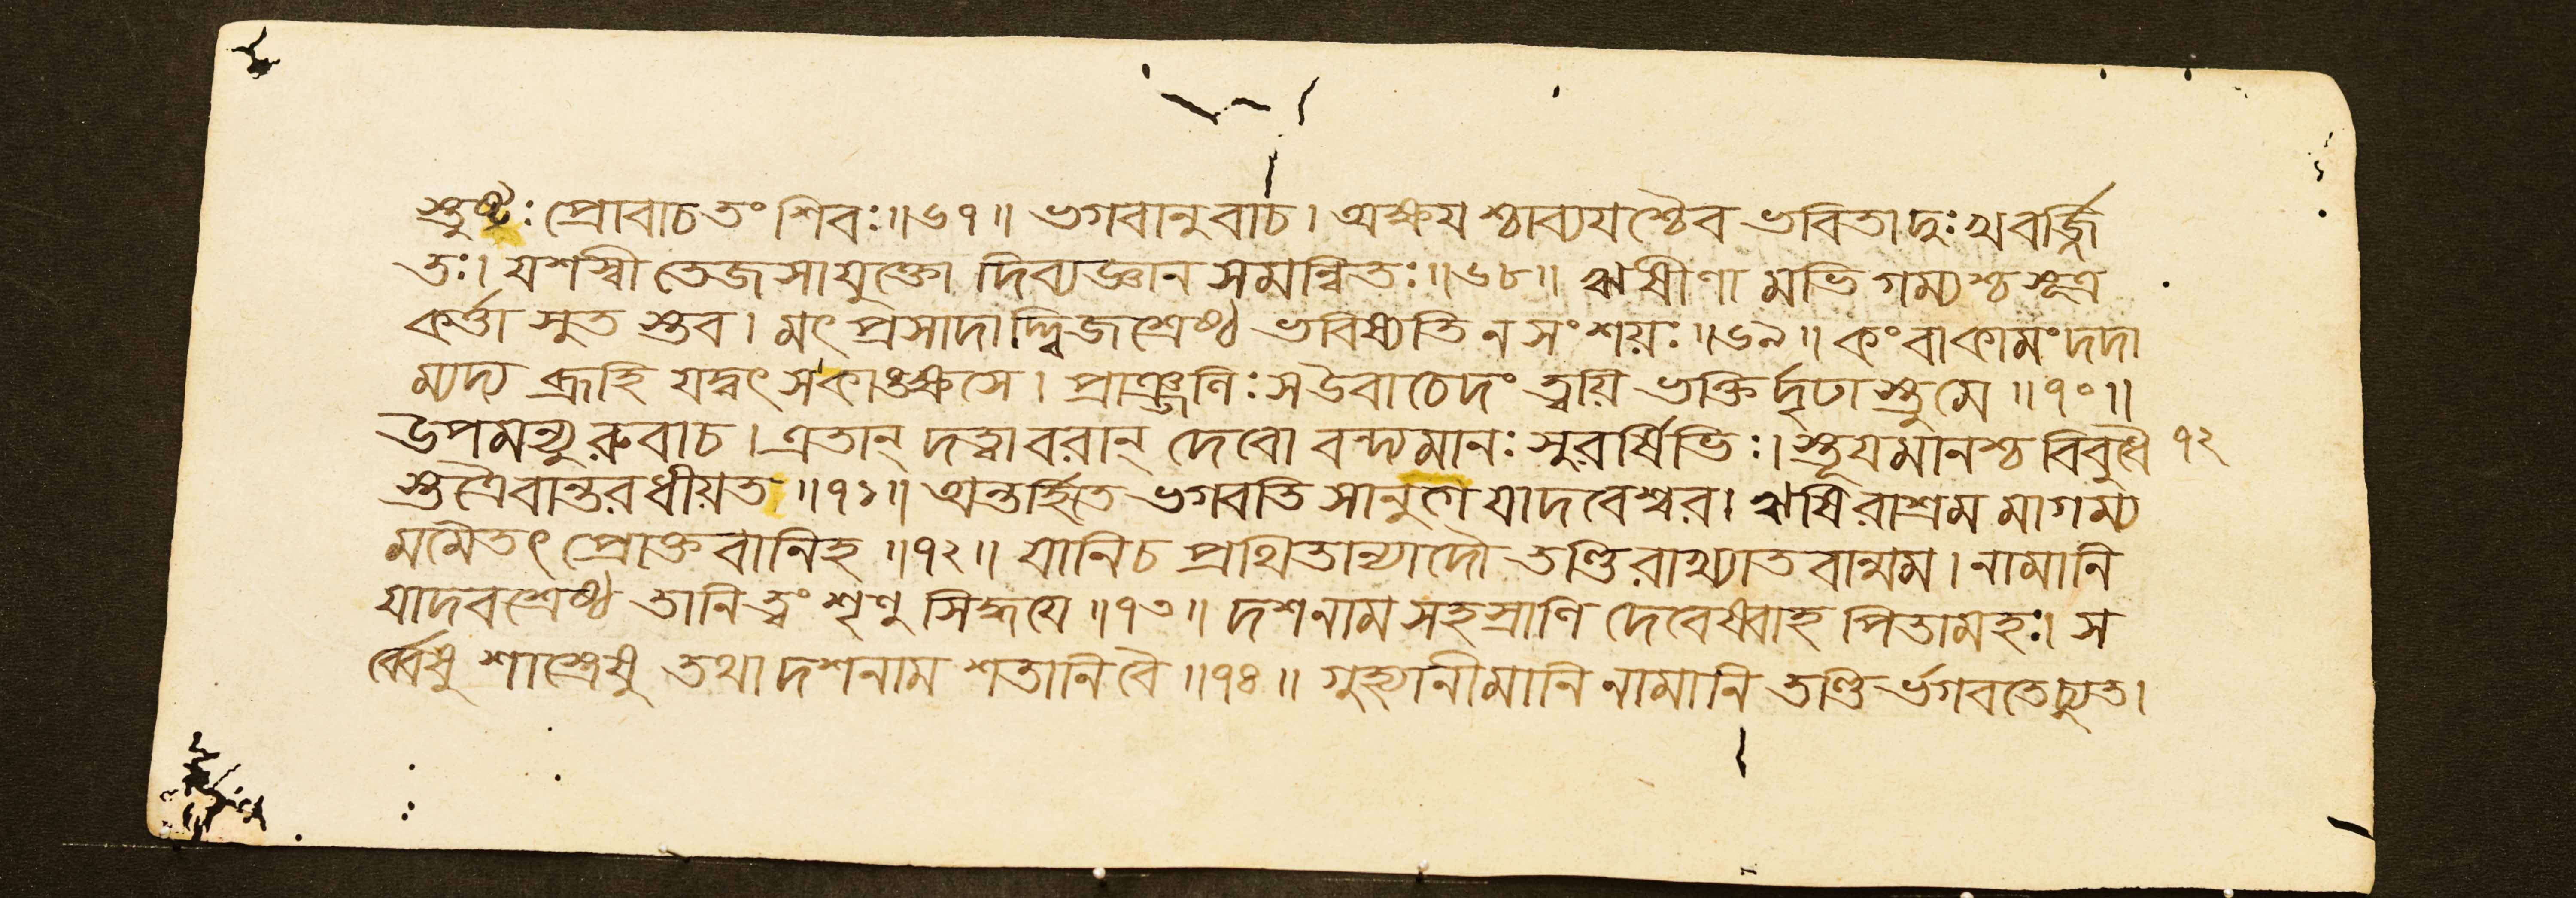 স্তুষ্টঃ প্রোবাচ তং শিবঃ॥৬৭॥ ভগবানুবাচ। অক্ষয়শ্চাব্যয়শ্চৈব ভবিতা দুঃখবর্জ্জি
তঃ। যশস্বী তেজসা যুক্তো দিব্যজ্ঞান সমন্বিতঃ॥৬৮॥ ঋষীণা মভিগম্যশ্চ শূত্র
কর্ত্তা সুত স্তব। মৎ প্রসাদাদ্দ্বিজশ্রেষ্ঠ ভবিষ্যতি ন সংশয়ঃ॥৬৯॥ কং বা কামং দদা
ম্যদ্য ব্রূহি যদ্বৎ স কাঙ্ক্ষসে। প্রাঞ্জলিঃ স উবাচেদং ত্বয়ি ভক্তির্দৃঢাস্তু মে॥৭০॥
উপমন্যুরুবাচ। এতান্ দত্ত্বা বরান্ দেবো বন্দ্যমানঃ সুরর্ষিভিঃ। স্তূয়মানশ্চ বিবুধৈ ৭২
স্তত্রৈবান্তরধীয়ত॥৭১॥ অন্তর্হিতে ভগবতি সানুগে যাদবেশ্বর। ঋষিরাশ্রম মাগম্য
মমৈতৎ প্রোক্তবানিহ॥৭২॥ যানি চ প্রথিতান্যাদৌ তণ্ডিরাখ্যাতবান্মম। নামানি
যাদবশ্রেষ্ঠ তানি ত্বং শৃণু সিদ্ধয়ে॥৭৩॥ দশনাম সহস্রাণি দেবেষ্বাহ পিতামহঃ। স
র্ব্বেষু শাস্ত্রেষু তথা দশনাম শতানি বৈ॥৭৪॥ গুহ্যানীমানি নামানি তণ্ডির্ভগবতেচ্যুত।